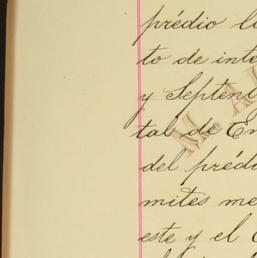 prédio l
to de inte
y Septent
tal de En
del prédi
mites me
este y el